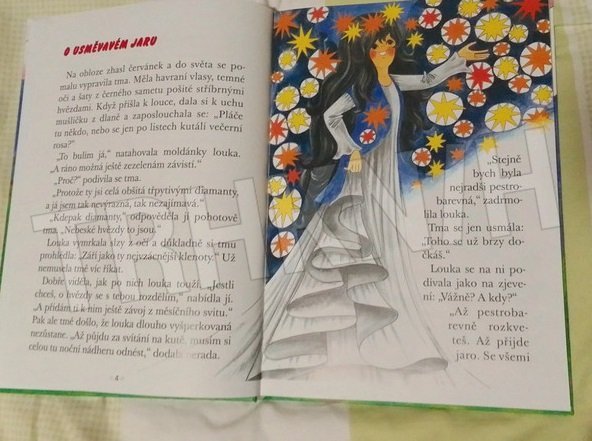 O USMĚVAVÉM JARU
Na obloze zhasl červánek a do světa se po-
malu vypravila tma. Měla havraní vlasy, temné
oči a šaty z černého sametu pošité stříbrnými
hvězdami. Když přišla k louce, dala si k uchu
mušličku z dlaně a zaposlouchala se: „Pláče
tu někdo, nebo se jen po listech kutálí večerní
rosa?“
„To bulím já,“ natahovala moldánky louka.
„A ráno možná ještě zezelenám závistí.“
„Proč?“ podivila se tma.
„Protože ty jsi celá obšitá třpytivými diamanty,
a já jsem tak nevýrazná, tak nezajímavá.“
„Kdepak diamanty,“ odpověděla jí pohotově
tma. „Nebeské hvězdy to jsou.“
Louka vymrkala slzy z očí a důkladně si tmu
prohlédla: „Září jako ty nejvzácnější klenoty.“ Už
nemusela tmě víc říkat.
Dobře viděla, jak po nich louka touží. „Jestli
chceš, o hvězdy se s tebou rozdělím,“ nabídla jí.
„A přidám ti k nim ještě závoj z měsíčního svitu.“
Pak ale tmě došlo, že louka dlouho vyšperkovaná
nezůstane. „Až půjdu za svítání na kutě, musím si
celou tu noční nádheru odnést,“ dodala nerada.
4
„Stejně
bych byla
nejradši pestro-
barevná,“ zadrmo-
lila louka.
Tma se jen usmála:
„Toho se už brzy do-
čkáš.“
Louka se na ni po-
dívala jako na zjeve-
ní: „Vážně? A kdy?“
„Až pestroba-
revně rozkve-
teš. Až přijde
jaro. Se všemi
TRHANA